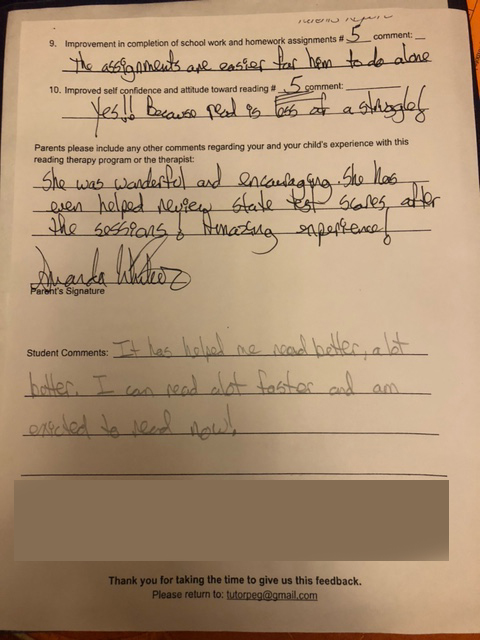 9. Improvement in completion of school work and homework assignments # 5 comment:
The assignments are easier for him to do alone
10. Improved self confidence and attitude toward reading # 5 comment:
Yes!! Because read is less of a struggle!
Parents please include any other comments regarding your and your child's experience with this
reading therapy program or the therapist:
She was wonderful and encouraging. She has
even helped review state test scores after
the sessions! Amazing experience!
Amanda
Parent's Signature
Student Comments: It has helped me read better, alot
better. I can read alot faster and am
exicted to read now!
Thank you for taking the time to give us this feedback.
Please return to: tutorpeg@gmail.com